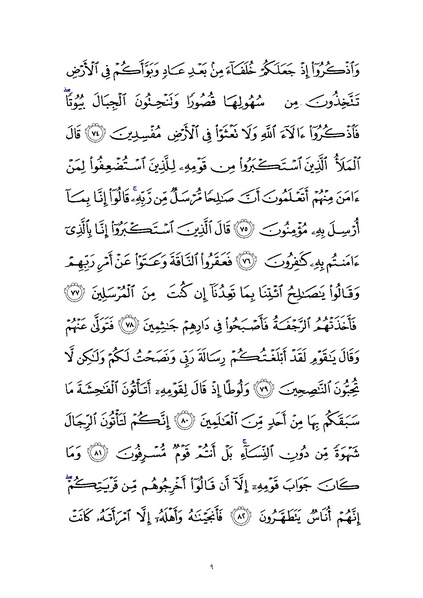 وَٱذۡكُرُوٓاْ إِذۡ جَعَلَكُمۡ خُلَفَآءَ مِنۢ بَعۡدِ عَادٖ وَبَوَّأَكُمۡ فِي ٱلۡأَرۡضِ
تَتَّخِذُونَ مِن سُهُولِهَا قُصُورٗا وَتَنۡحِتُونَ ٱلۡجِبَالَ بُيُوتٗاۖ
فَٱذۡكُرُوٓاْ ءَالَآءَ ٱللَّهِ وَلَا تَعۡثَوۡاْ فِي ٱلۡأَرۡضِ مُفۡسِدِينَ ٧٤ قَالَ
ٱلۡمَلَأُ ٱلَّذِينَ ٱسۡتَكۡبَرُواْ مِن قَوۡمِهِۦ لِلَّذِينَ ٱسۡتُضۡعِفُواْ لِمَنۡ
ءَامَنَ مِنۡهُمۡ أَتَعۡلَمُونَ أَنَّ صَٰلِحٗا مُّرۡسَلٞ مِّن رَّبِّهِۦۚ قَالُوٓاْ إِنَّا بِمَآ
أُرۡسِلَ بِهِۦ مُؤۡمِنُونَ ٧٥ قَالَ ٱلَّذِينَ ٱسۡتَكۡبَرُوٓاْ إِنَّا بِٱلَّذِيٓ
ءَامَنتُم بِهِۦ كَٰفِرُونَ ٧٦ فَعَقَرُواْ ٱلنَّاقَةَ وَعَتَوۡاْ عَنۡ أَمۡرِ رَبِّهِمۡ
وَقَالُواْ يَٰصَٰلِحُ ٱئۡتِنَا بِمَا تَعِدُنَآ إِن كُنتَ مِنَ ٱلۡمُرۡسَلِينَ ٧٧
فَأَخَذَتۡهُمُ ٱلرَّجۡفَةُ فَأَصۡبَحُواْ فِي دَارِهِمۡ جَٰثِمِينَ ٧٨ فَتَوَلَّىٰ عَنۡهُمۡ
وَقَالَ يَٰقَوۡمِ لَقَدۡ أَبۡلَغۡتُكُمۡ رِسَالَةَ رَبِّي وَنَصَحۡتُ لَكُمۡ وَلَٰكِن لَّا
تُحِبُّونَ ٱلنَّٰصِحِينَ ٧٩ وَلُوطًا إِذۡ قَالَ لِقَوۡمِهِۦٓ أَتَأۡتُونَ ٱلۡفَٰحِشَةَ مَا
سَبَقَكُم بِهَا مِنۡ أَحَدٖ مِّنَ ٱلۡعَٰلَمِينَ ٨٠ إِنَّكُمۡ لَتَأۡتُونَ ٱلرِّجَالَ
شَهۡوَةٗ مِّن دُونِ ٱلنِّسَآءِۚ بَلۡ أَنتُمۡ قَوۡمٞ مُّسۡرِفُونَ ٨١ وَمَا
كَانَ جَوَابَ قَوۡمِهِۦٓ إِلَّآ أَن قَالُوٓاْ أَخۡرِجُوهُم مِّن قَرۡيَتِكُمۡۖ
إِنَّهُمۡ أُنَاسٞ يَتَطَهَّرُونَ ٨٢ فَأَنجَيۡنَٰهُ وَأَهۡلَهُۥٓ إِلَّا ٱمۡرَأَتَهُۥ كَانَتۡ
٩